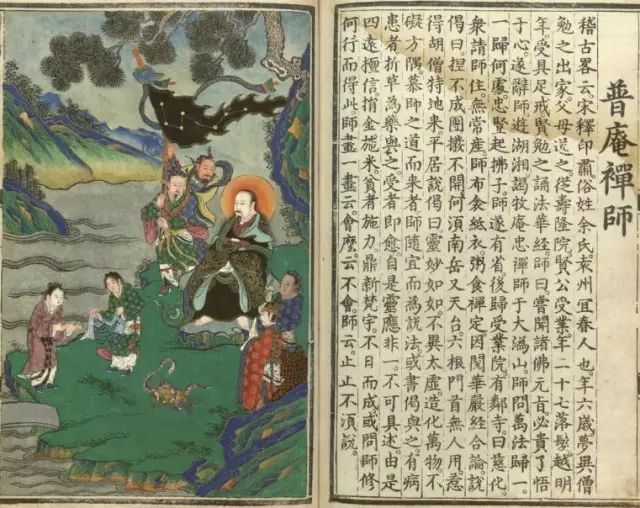 普庵禪師
稽古畧云宋釋印肅俗姓余氏袁州宜春人也年六歲夢異僧
勉之出家父母送之從壽隆院賢公受業年二十七落髮越明
年受具足戒賢勉之誦法華經師曰嘗聞諸佛元旨必貴了悟
于心遂辭師遊湖湘謁牧庵忠禪師于大溈山師問萬法歸一
一歸何處忠豎起拂子師遂有省後歸受業院有鄰寺曰慈化
衆請師住無常産師布衾紙衣粥食禪定因閱華嚴經合論說
偈曰捏不成團撥不開何須南岳又天台六根門首無人用惹
得胡僧特地来平居說偈曰靈妙如如不異太虛造化萬物不
礙方隅慕師之道而来者師隨宜而為說法或書偈與之有病
患者折草為藥與之受者即愈自是靈應非一不可具述由是
四遠極信揹金施米貧者施力鼎新梵宇不日而成或問師修
何行而得此師畫一畫云會麽云不會師云止止不須說